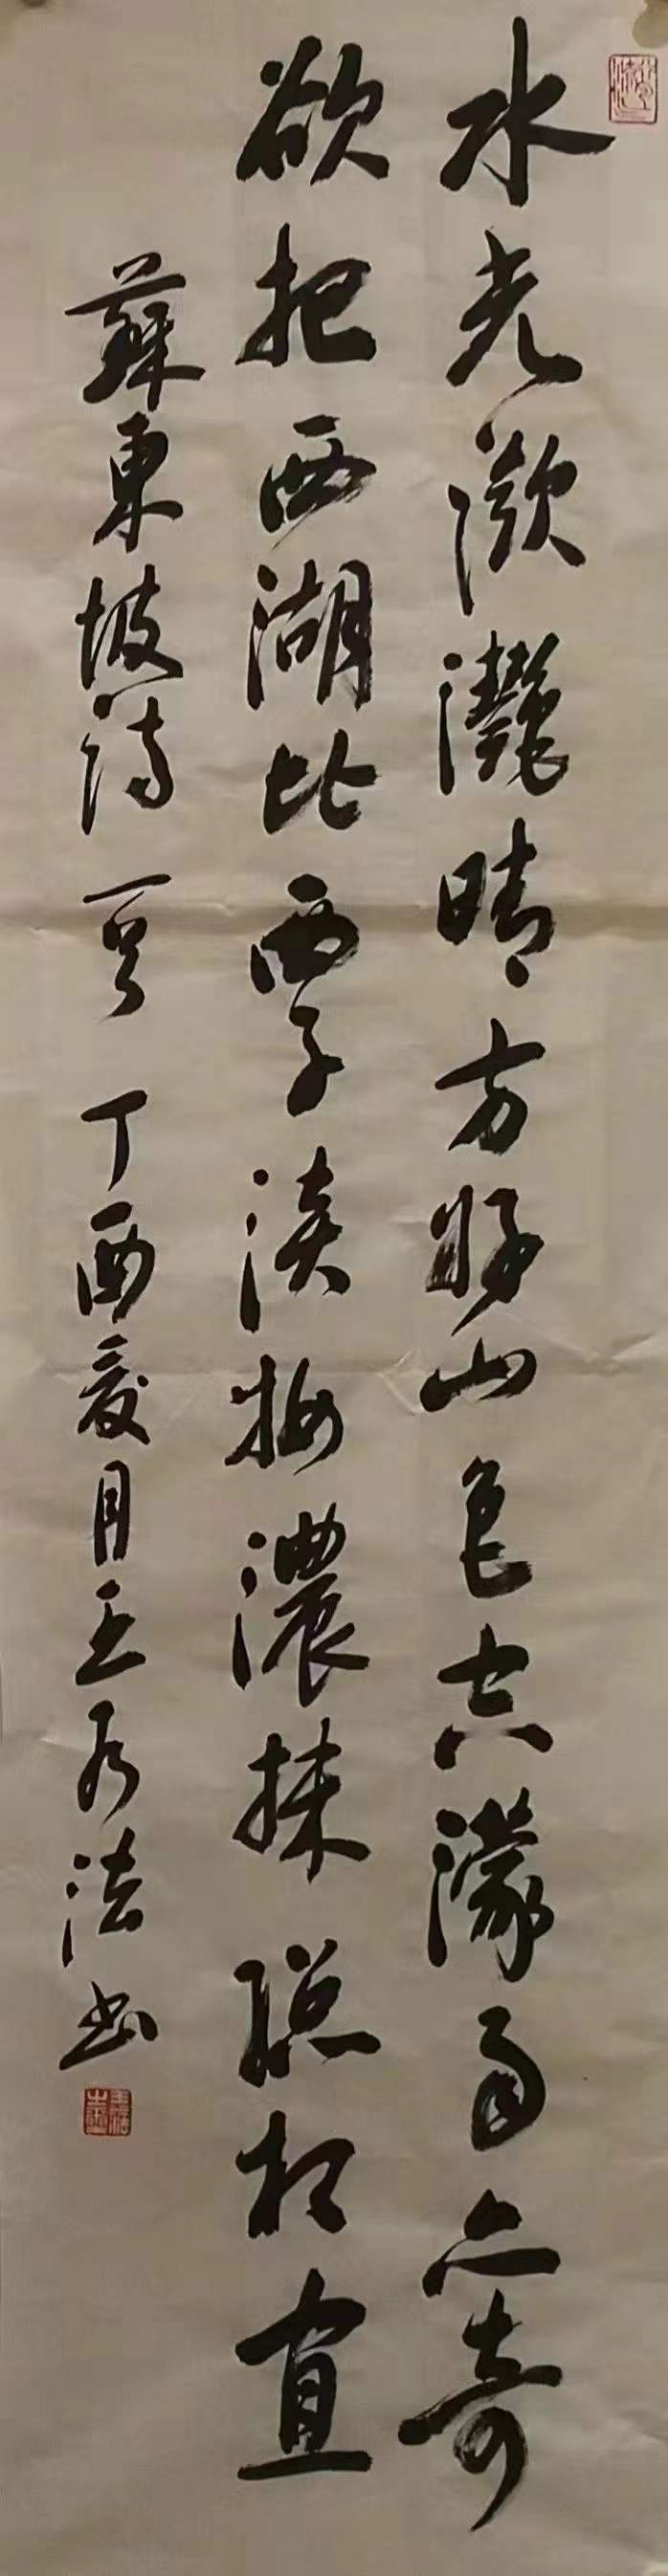 水光瀲灩晴方好山色空濛雨亦奇
欲把西湖比西子淡妝濃抹總相宜
蘇東坡詩一首 丁酉夏月王法书